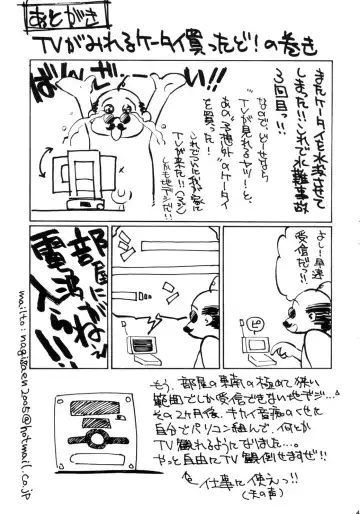 あとがき
TVがみれるケータイ買ったど!の巻き
またケータイを水没させて
しまった!!これで水難事故
3回目っ!!
なので、どーせなら
TVが見れるヤツ!と、
あの予想外のケータイ
を買った!
これでついに我が家に
TVが来た!!
しかも地デジだ!!
ばんざーい!!
よーし!早速
受信だっ!!
ピ
部屋に
電波が
入らねぇ!!
もう、部屋の東南の極めて狭い
範囲でしか受信できない地デジ…。
その2ヶ月後、キカイ音痴のくせに
自分でパソコン組んで、何とか
TV観れるようになりました…。
やっと自由にTV観倒せますぜ!!
仕事に使えっ!!
(天の声)
mailto:nagisaen2005@hotmail.co.jp